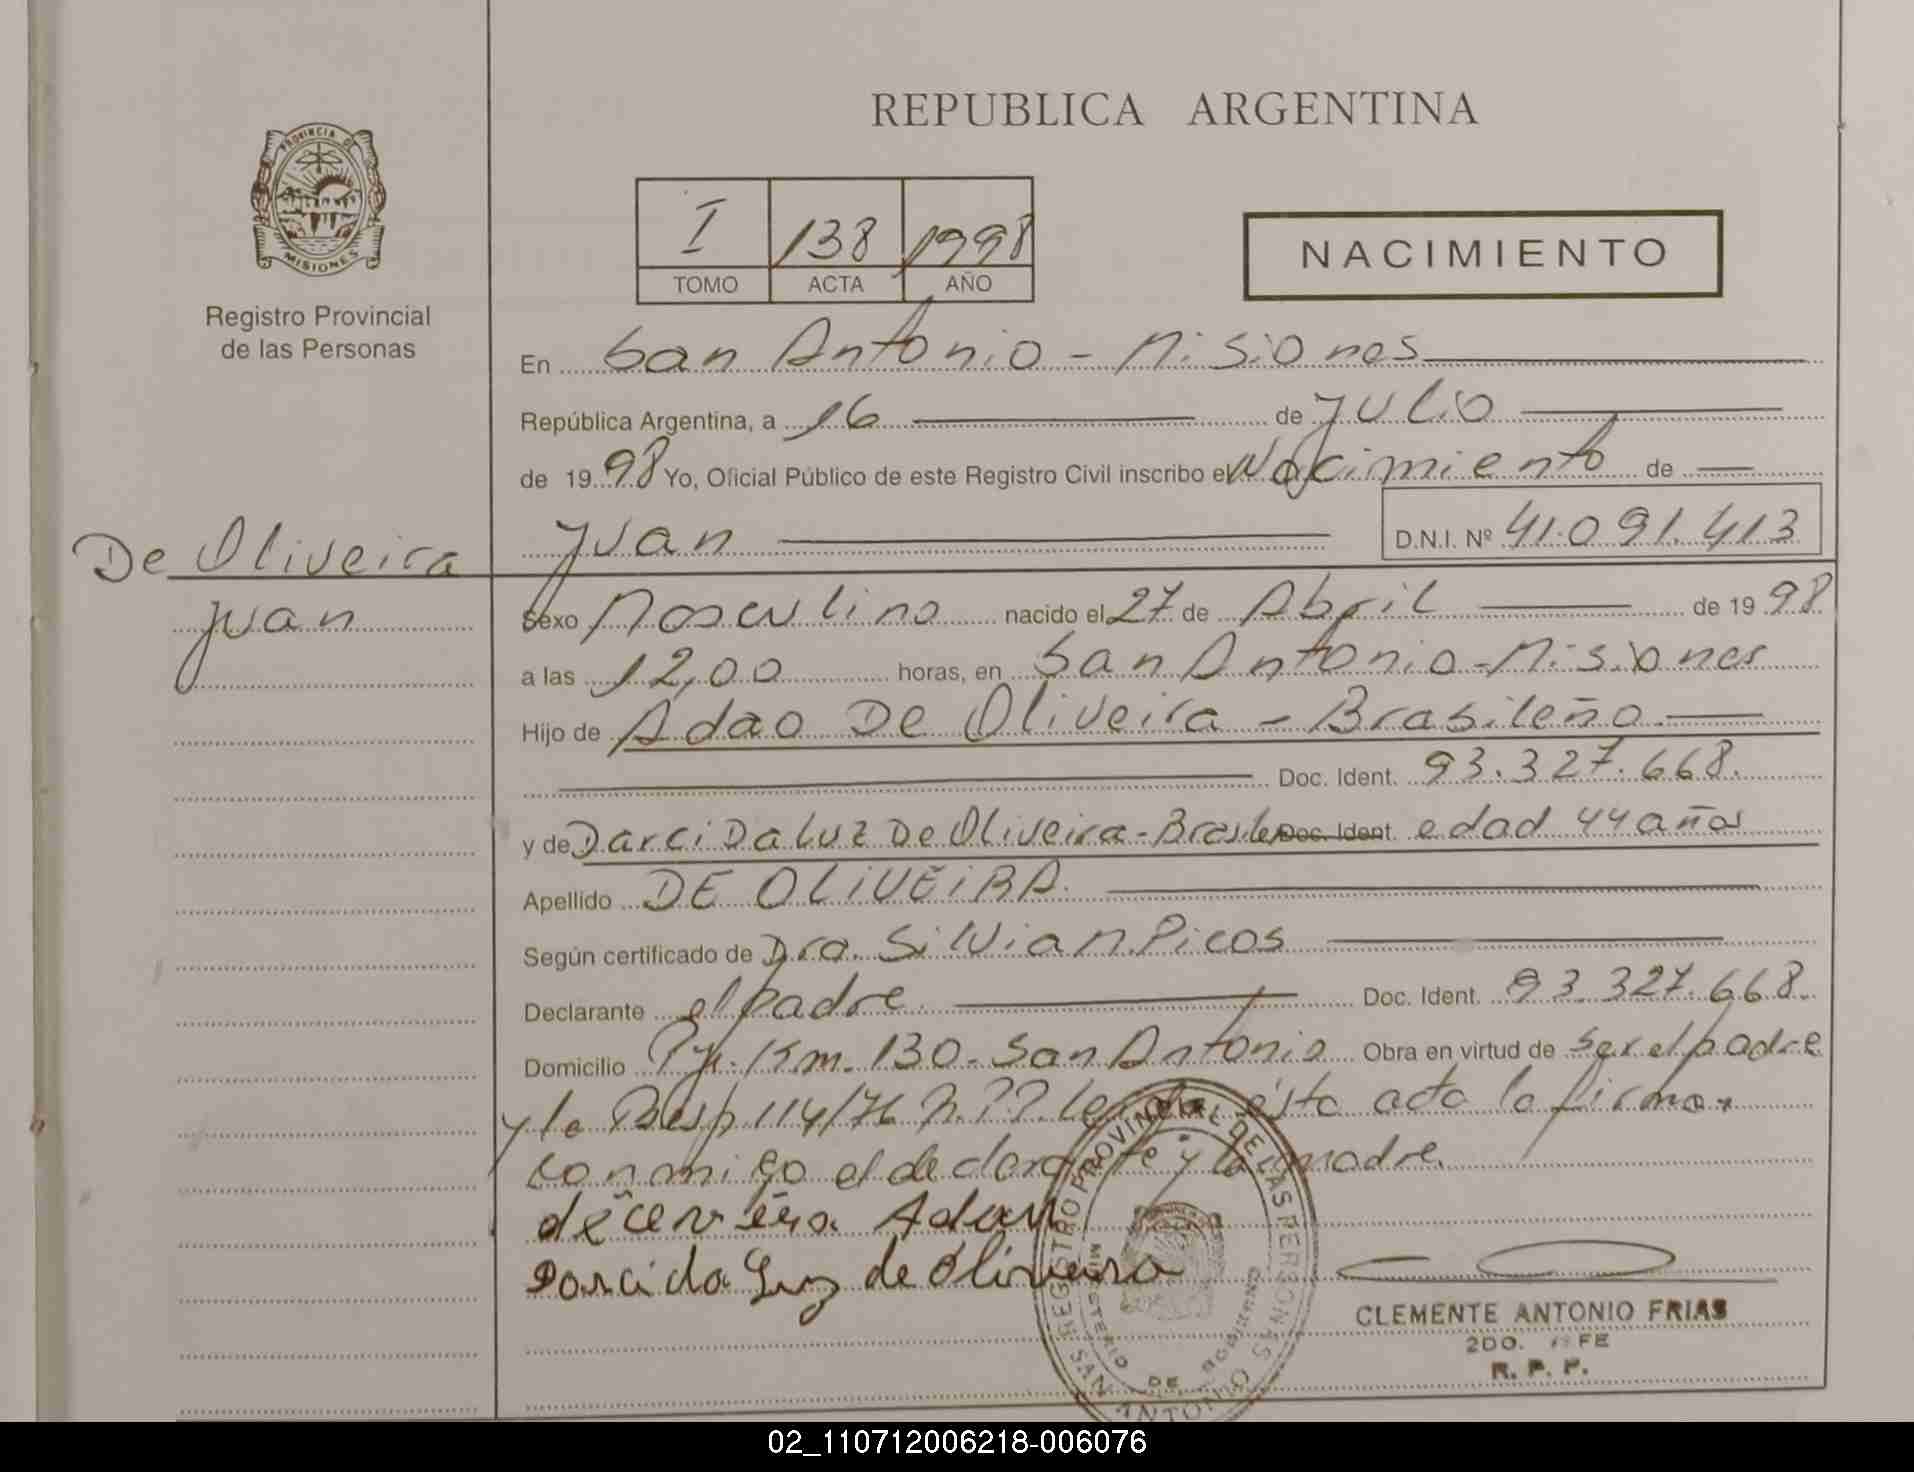 PROVINCIA DE
MISIONES
Registro Provincial
de las Personas
De Oliveira
Juan
REPUBLICA ARGENTINA
I 138 1998
TOMO ACTA AÑO
NACIMIENTO
En San Antonio - Misiones
República Argentina, a 16 de Julio
de 1998 Yo, Oficial Público de este Registro Civil inscribo el Nacimiento de
Juan D.N.I. Nº 41.091.413
Sexo Masculino nacido el 27 de Abril de 1998
a las 12,00 horas, en San Antonio - Misiones
Hijo de Adao De Oliveira - Brasileño
Doc. Ident. 93.327.668.
y de Darci Da Luz De Oliveira - Brasileña Doc. Ident. edad 44 años
Apellido DE OLIVEIRA.
Según certificado de Dra. Silvia N. Picos
Declarante el padre Doc. Ident. 93.327.668.
Domicilio Km. 130 - San Antonio Obra en virtud de ser el padre
y la 114/76 ésta acta la firman
conmigo el declarante y la madre.
Adan
Darci da Luz de Oliveira
REGISTRO PROVINCIAL DE LAS PERSONAS
MINISTERIO DE GOBIERNO
SAN ANTONIO
CLEMENTE ANTONIO FRIAS
2DO. FE
R. P. P.
02_110712006218-006076